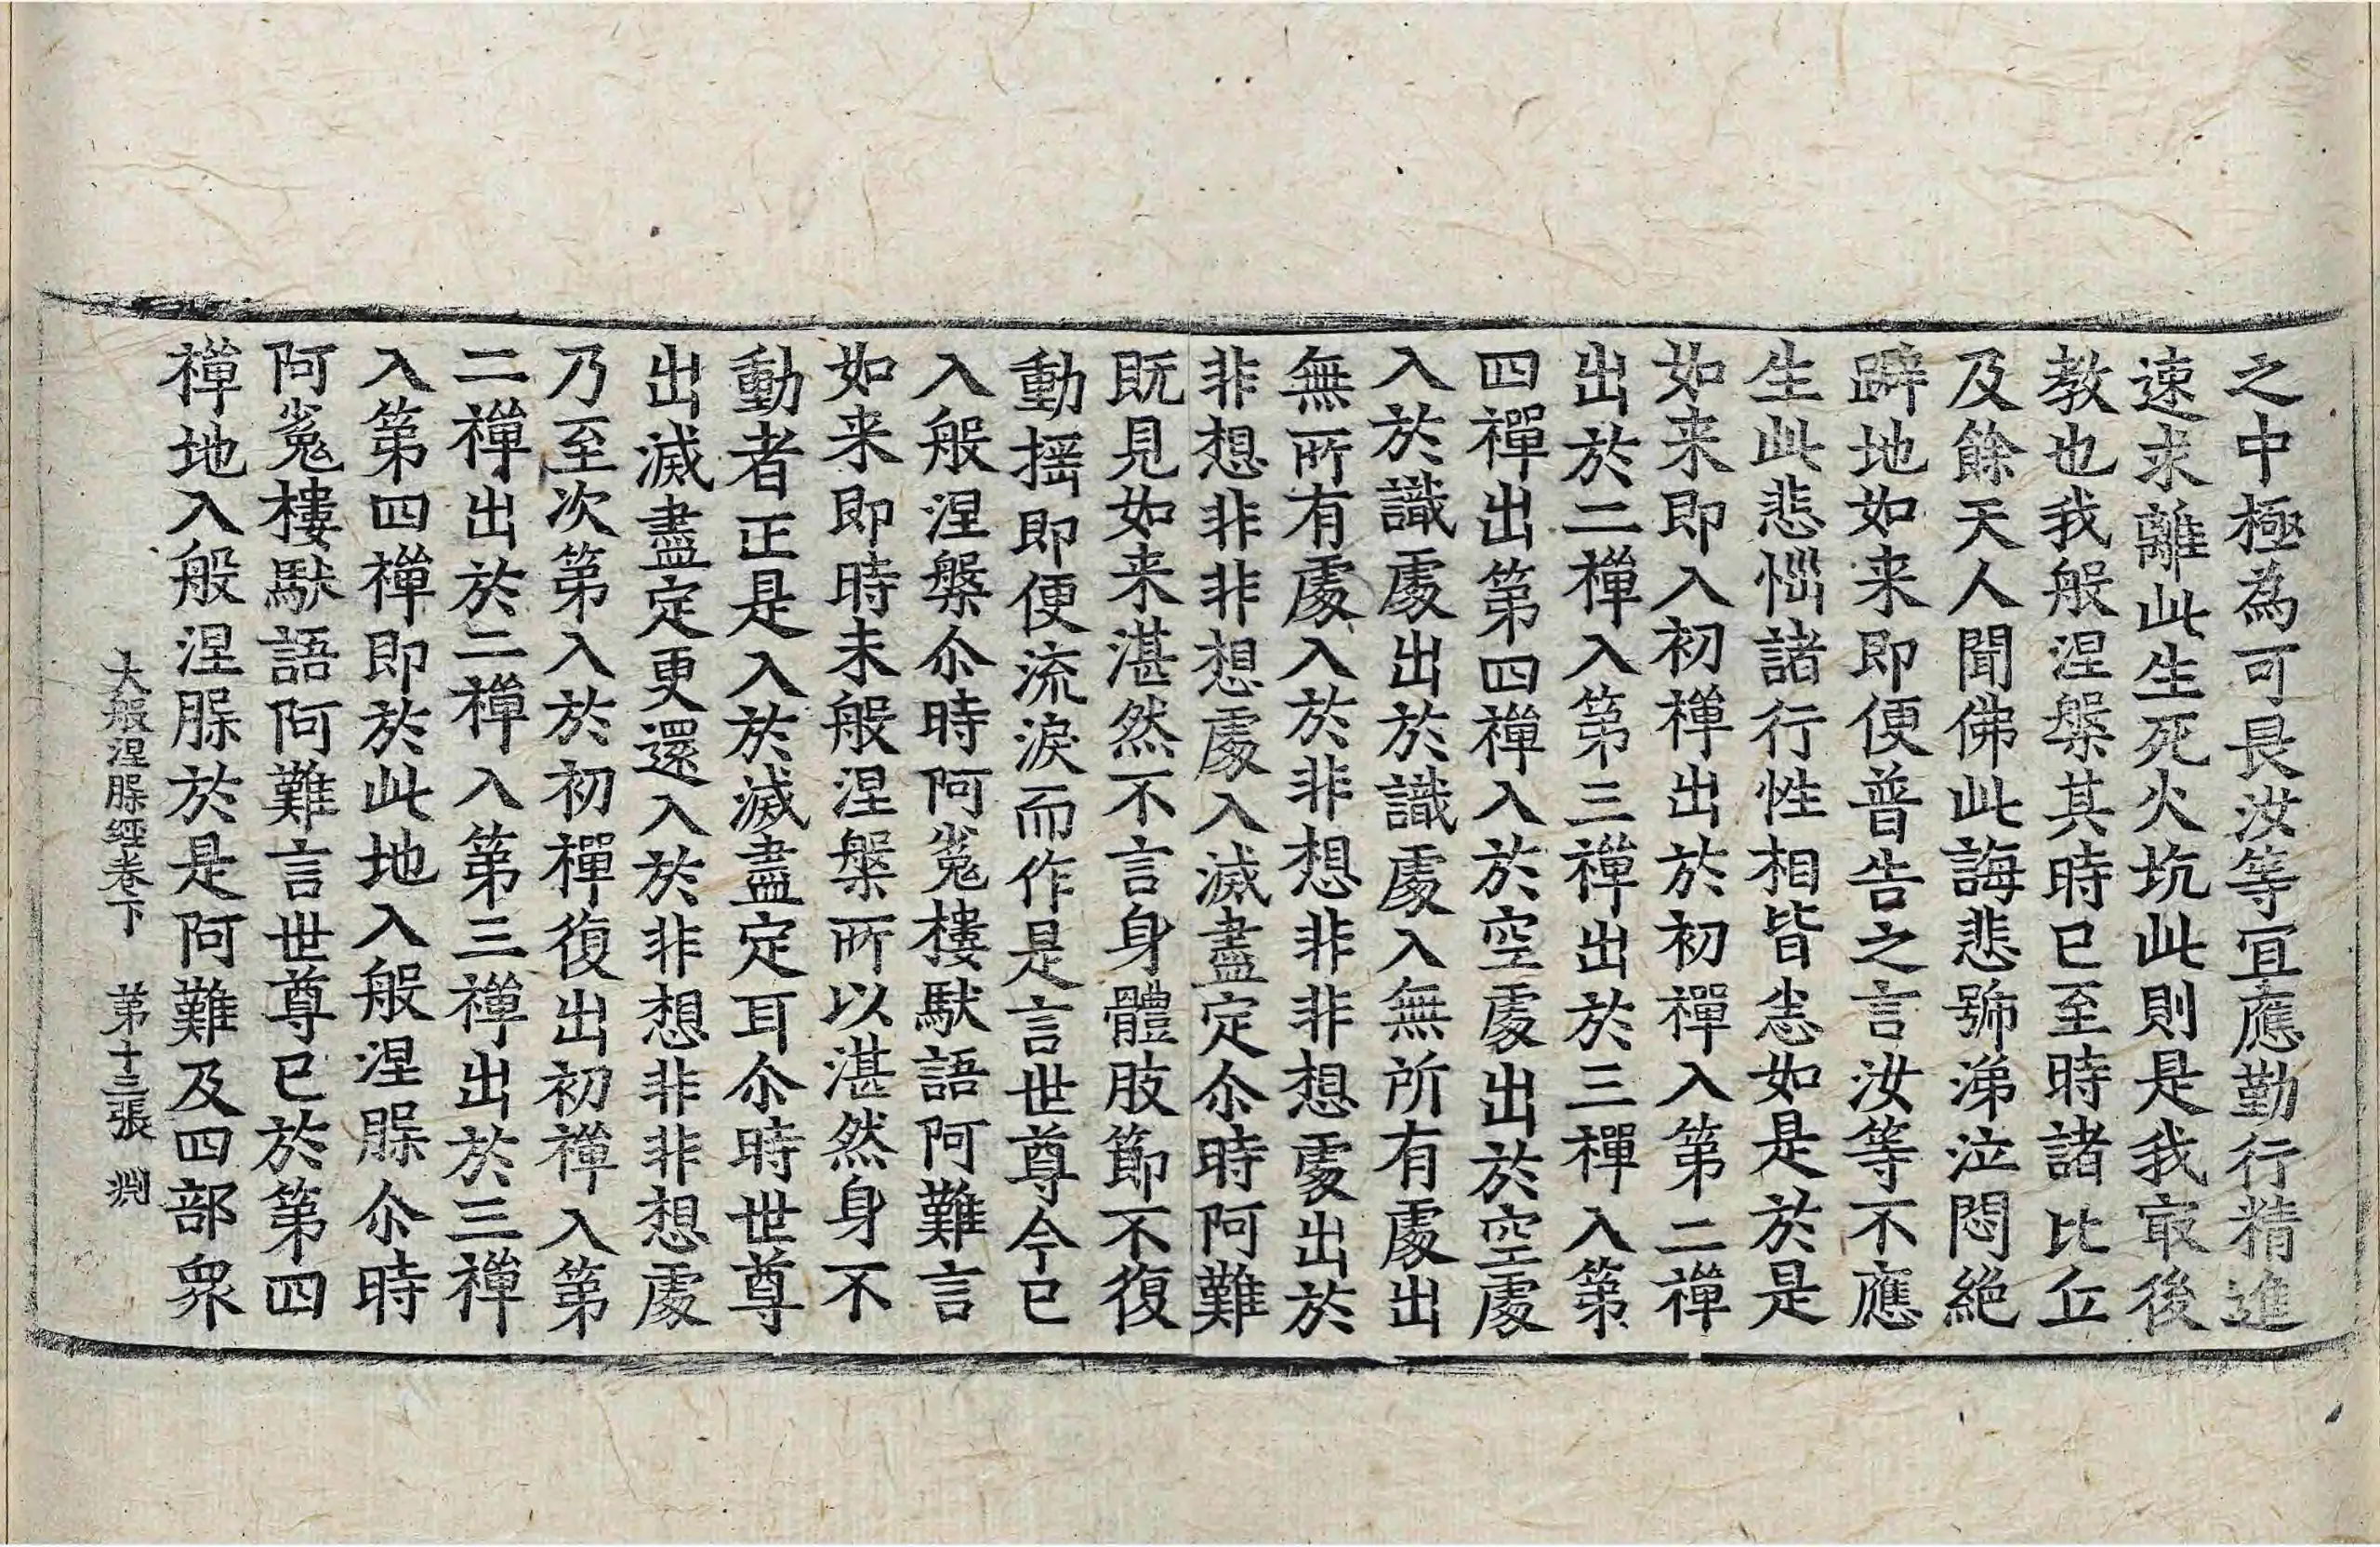 之中極為可畏汝等宜應勤行精進
速求離此生死火坑此則是我㝡後
教也我般涅槃其時已至時諸比丘
及餘天人聞佛此誨悲號涕泣悶絕
躃地如来即便普告之言汝等不應
生此悲惱諸行性相皆悉如是於是
如来即入初禪出於初禪入第二禪
出於二禪入第三禪出於三禪入第
四禪出第四禪入於空處出於空處
入於識處出於識處入無所有處出
無所有處入於非想非非想處出於
非想非非想處入滅盡定尒時阿難
既見如来湛然不言身體肢節不復
動揺即便流淚而作是言世尊今已
入般涅槃尒時阿㝹樓馱語阿難言
如来即時未般涅槃所以湛然身不
動者正是入於滅盡定耳尒時世尊
出滅盡定更還入於非想非非想處
乃至次第入於初禪復出初禪入第
二禪出於二禪入第三禪出於三禪
入第四禪即於此地入般涅槃尒時
阿㝹樓馱語阿難言世尊已於第四
禪地入般涅槃於是阿難及四部衆
大般涅槃経卷下　第十三張　淵